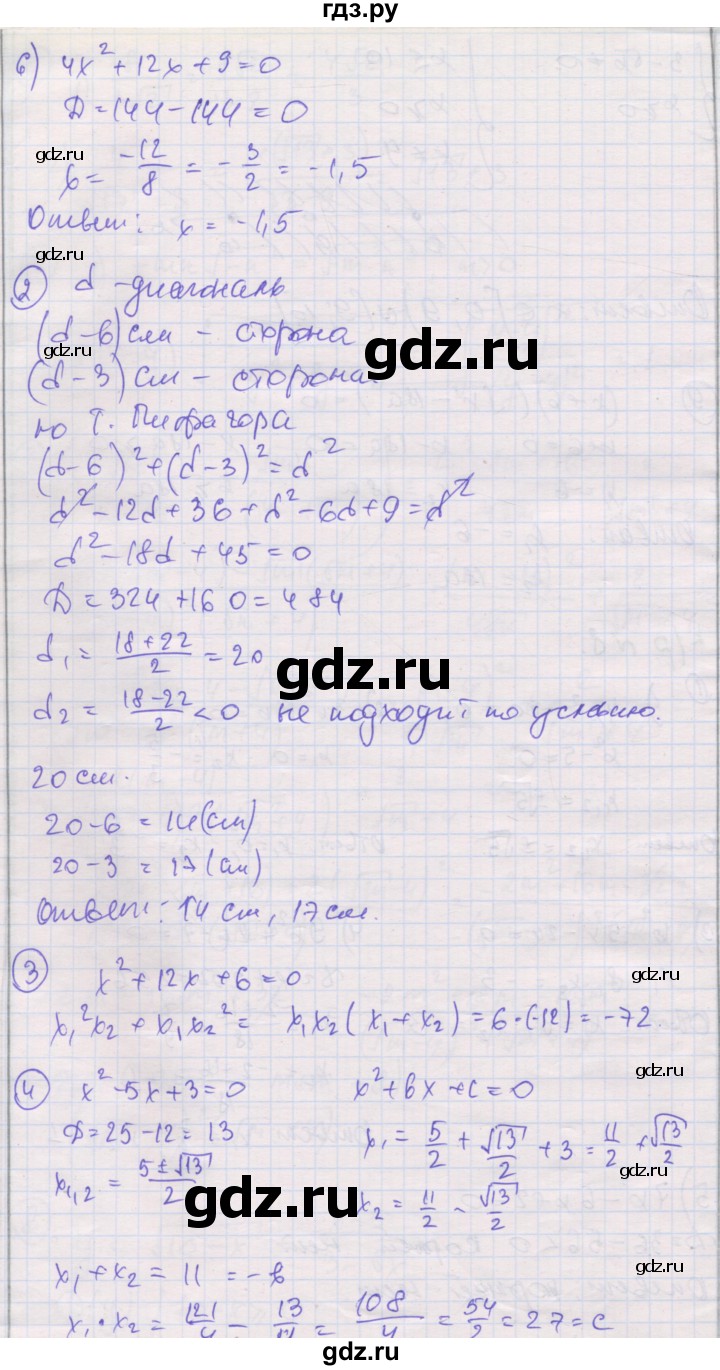 гдз.ру
б) 4x² + 12x + 9 = 0
D = 144 - 144 = 0
gdz.ru
x = -12/8 = -3/2 = -1,5
Ответ: x = -1,5
gdz.ru
2 d - диагональ
(d-6) см - сторона
gdz.ru
(d-3) см - сторона
по т. Пифагора
(d-6)² + (d-3)² = d²
d² - 12d + 36 + d² - 6d + 9 = d²
d² - 18d + 45 = 0
D = 324 + 160 = 484
d₁ = (18+22)/2 = 20
gdz.ru
d₂ = (18-22)/2 < 0 не подходит по условию.
20 см.
20 - 6 = 14 (см)
20 - 3 = 17 (см)
Ответ: 14 см, 17 см.
3 x² + 12x + 6 = 0
gdz.ru
x₁²x₂ + x₁x₂² = x₁x₂(x₁+x₂) = 6·(-12) = -72.
gdz.ru
4 x² - 5x + 3 = 0 x² + bx + c = 0
D = 25 - 12 = 13 x₁ = 5/2 + √13/2 + 3 = 11/2 + √13/2
gdz.ru
x₁,₂ = (5±√13)/2 x₂ = 11/2 - √13/2
gdz.ru
x₁ + x₂ = 11 = -b
gdz.ru
x₁·x₂ = 121/4 - 13/4 = 108/4 = 54/2 = 27 = c